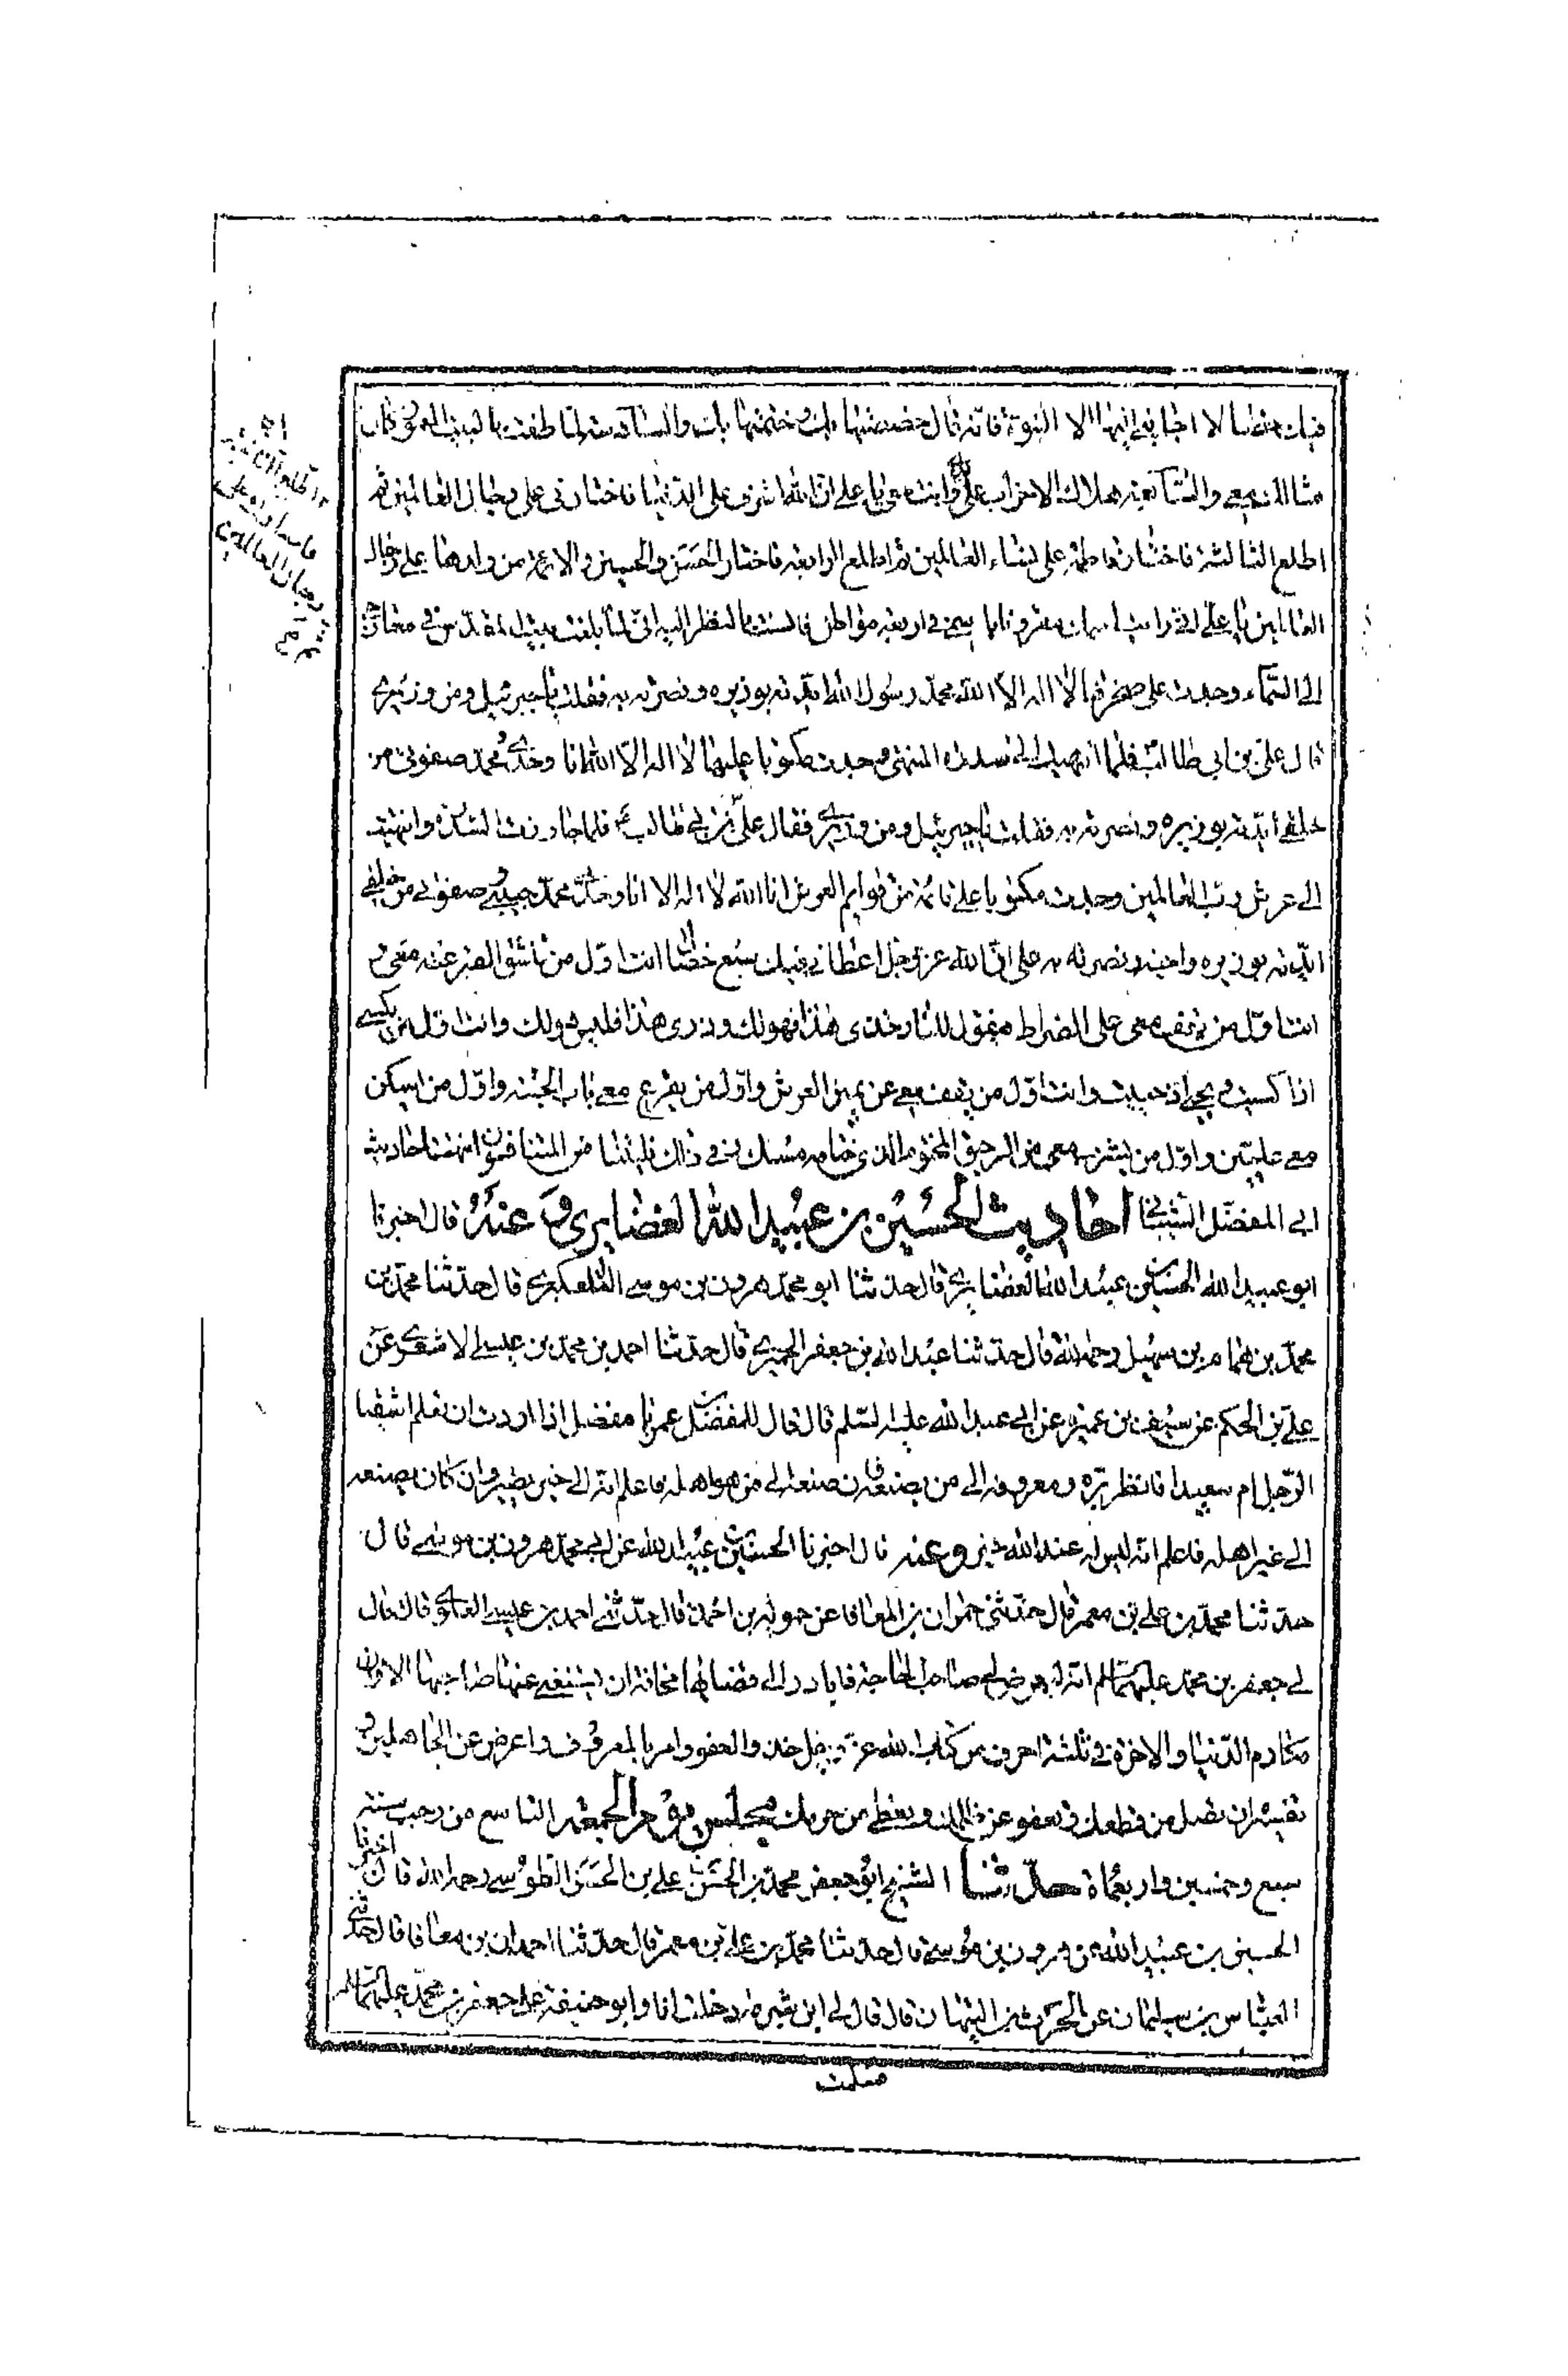 فيك خصالا اجابني فيها الا النبوة فانه قال خصصتها بك وختمتها بك والسادسة لما طفت بالبيت المعمور كان
مثالك معي والسابعة هلاك الاحزاب على يدي وانت معي يا علي ان الله اشرف على الدنيا فاختارني على رجال العالمين ثم
اطلع الثالثة فاختار فاطمة على نساء العالمين ثم اطلع الرابعة فاختار الحسن والحسين والائمة من ولدها على رجال
العالمين يا علي اني رايت اسمك مقرونا باسمي في اربعة مواطن فانست بالنظر اليه اني لما بلغت بيت المقدس في معارجي
الى السماء وجدت على صخرتها لا اله الا الله محمد رسول الله ايدته بوزيره ونصرته به فقلت يا جبرئيل ومن وزيري
قال علي بن ابي طالب فلما انتهيت الى سدرة المنتهى وجدت مكتوبا عليها لا اله الا الله انا وحدي محمد صفوتي من
خلقي ايدته بوزيره ونصرته به فقلت يا جبرئيل ومن وزيري فقال علي بن ابي طالب ع فلما جاوزت السدرة وانتهيت
الى عرش رب العالمين وجدت مكتوبا على قائمة من قوايم العرش انا الله لا اله الا انا وحدي محمد حبيبي صفوتي من خلقي
ايدته بوزيره واخيه ونصرته به يا علي ان الله عز وجل اعطاني فيك سبع خصال انت اول من ينشق القبر عنه معي و
انت اول من يقف معي على الصراط فيقول للنار خذي هذا فهو لك وذري هذا فليس هو لك وانت اول من يكسى
اذا كسيت ويحيى اذا حييت وانت اول من يقف معي عن يمين العرش واول من يقرع معي باب الجنة واول من يسكن
معي عليين واول من يشرب معي من الرحيق المختوم الذي ختامه مسك وفي ذلك فليتنافس المتنافسون انتهت احاديث
ابي المفضل الشيباني احاديث الحسين بن عبيد الله الغضايري وعنه قال اخبرنا
ابو عبيد الله الحسين بن عبيد الله الغضايري قال حدثنا ابو محمد هرون بن موسى التلعكبري قال حدثنا محمد بن
محمد بن همام بن سهيل رحمه الله قال حدثنا عبد الله بن جعفر الحميري قال حدثنا احمد بن محمد بن عيسى الاشعري عن
علي بن الحكم عن سيف بن عميرة عن ابي عبد الله عليه السلم قال قال للمفضل بن عمر يا مفضل اذا اردت ان تعلم اشقيا
الرجل ام سعيدا فانظر بره ومعروفه الى من يصنعه فان صنعه الى من هو اهله فاعلم انه الى خير يصير وان كان يصنعه
الى غير اهله فاعلم انه ليس له عند الله خير وعنه قال اخبرنا الحسين بن عبيد الله عن ابي محمد هرون بن موسى قال
حدثنا محمد بن علي بن معمر قال حدثني حمران بن المعافا عن حمويه بن احمد قال حدثني احمد بن عيسى العلوي قال قال
لي جعفر بن محمد عليهما السلم انه ليعرض لي صاحب الحاجة فابادر الى قضائها مخافة ان يستغني عنها صاحبها الا وان
مكارم الدنيا والاخرة في ثلثة احرف من كتاب الله عز وجل خذ العفو وامر بالمعروف واعرض عن الجاهلين و
تفسيره ان تصل من قطعك وتعفو عن ظلمك وتعطي من حرمك مجلس يوم الجمعة التاسع من رجب سنة
سبع وخمسين واربعماة حدثنا الشيخ ابو جعفر محمد بن الحسن بن علي بن الحسن الطوسي رحمه الله قال اخبرنا
الحسين بن عبيد الله عن هرون بن موسى قال حدثنا محمد بن علي بن معمر قال حدثنا حمدان بن معافا قال حدثني
العباس بن سليمان عن الحرث بن التيهان قال قال لي ابن شبرمة دخلت انا وابو حنيفة على جعفر بن محمد عليهما السلم
ثم اطلع الثانية
فاختارك على
رجال العالمين
فسلمت